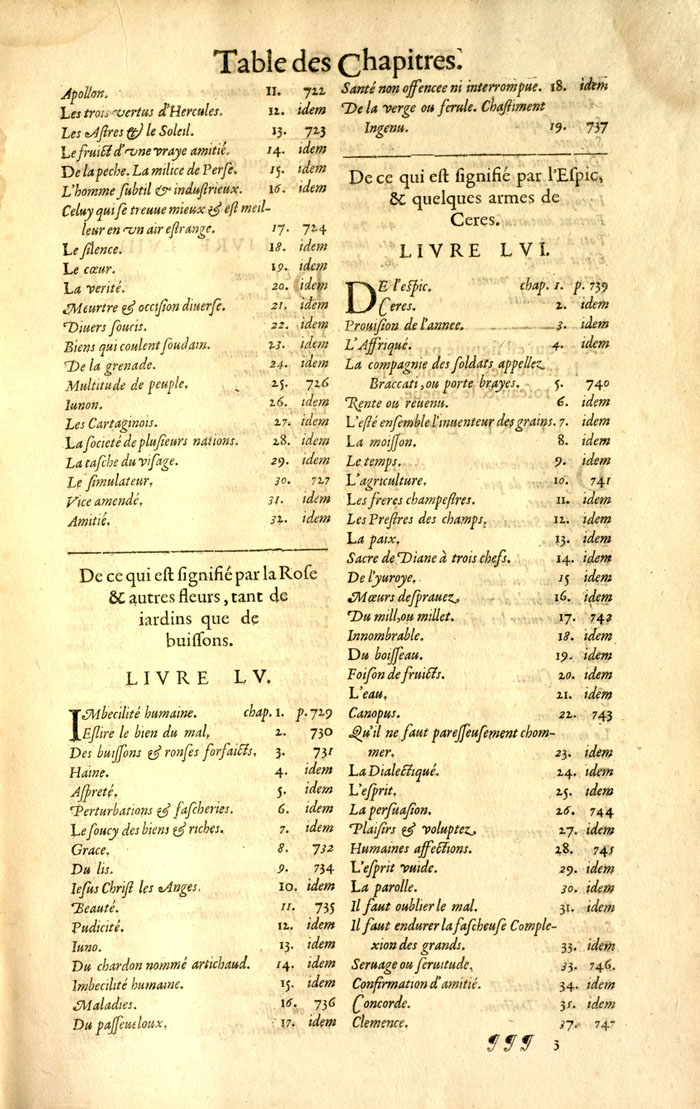 Table des Chapitres.
Apollon. 11. 722
Les trois vertus d'Hercules. 12. idem
Les Astres & le Soleil. 13. 723
Le fruict d'vne vraye amitié. 14. idem
De la peche. La milice de Perse. 15. idem
L'homme subtil & industrieux. 16. idem
Celuy qui se treuue mieux & est meil-
leur en vn air estrange. 17. 724
Le silence. 18. idem
Le cœur. 19. idem
La verité. 20. idem
Meurtre & occision diuerse. 21. idem
Diuers soucis. 22. idem
Biens qui coulent soudain. 23. idem
De la grenade. 24. idem
Multitude de peuple. 25. 726
Iunon. 26. idem
Les Cartaginois. 27. idem
La societé de plusieurs nations. 28. idem
La tasche du visage. 29. idem
Le simulateur. 30. 727
Vice amendé. 31. idem
Amitié. 32. idem
De ce qui est signifié par la Rose
& autres fleurs, tant de
iardins que de
buissons.
LIVRE LV.
IMbecilité humaine. chap. 1. p. 729
Eslire le bien du mal. 2. 730
Des buissons & ronses forfaicts. 3. 731
Haine. 4. idem
Aspreté. 5. idem
Perturbations & fascheries. 6. idem
Le soucy des biens & riches. 7. idem
Grace. 8. 732
Du lis. 9. 734
Iesus Christ les Anges. 10. idem
Beauté. 11. 735
Pudicité. 12. idem
Iuno. 13. idem
Du chardon nommé artichaud. 14. idem
Imbecilité humaine. 15. idem
Maladies. 16. 736
Du passeueloux. 17. idem
Santé non offencee ni interrompue. 18. idem
De la verge ou ferule. Chastiment
Ingenu. 19. 737
De ce qui est signifié par l'Espic,
& quelques armes de
Ceres.
LIVRE LVI.
DE l'espic. chap. 1. p. 739
Ceres. 2. idem
Prouision de l'annee. 3. idem
L'Affrique. 4. idem
La compagnie des soldats appellez
Braccati, ou porte brayes. 5. 740
Rente ou reuenu. 6. idem
L'esté ensemble l'inuenteur des grains. 7. idem
La moisson. 8. idem
Le temps. 9. idem
L'agriculture. 10. 741
Les freres champestres. 11. idem
Les Prestres des champs. 12. idem
La paix. 13. idem
Sacre de Diane à trois chefs. 14. idem
De l'yuroye. 15 idem
Mœurs desprauez. 16. idem
Du mill, ou millet. 17. 742
Innombrable. 18. idem
Du boisseau. 19. idem
Foison de fruicts. 20. idem
L'eau. 21. idem
Canopus. 22. 743
Qu'il ne faut paresseusement chom-
mer. 23. idem
La Dialectiqué. 24. idem
L'esprit. 25. idem
La persuasion. 26. 744
Plaisirs & voluptez. 27. idem
Humaines affections. 28. 745
L'esprit vuide. 29. idem
La parolle. 30. idem
Il faut oublier le mal. 31. idem
Il faut endurer la fascheuse Comple-
xion des grands. 33. idem
Seruage ou seruitude. 33. 746.
Confirmation d'amitié. 34. idem
Concorde. 35. idem
Clemence. 37. 747
¶¶¶ 3